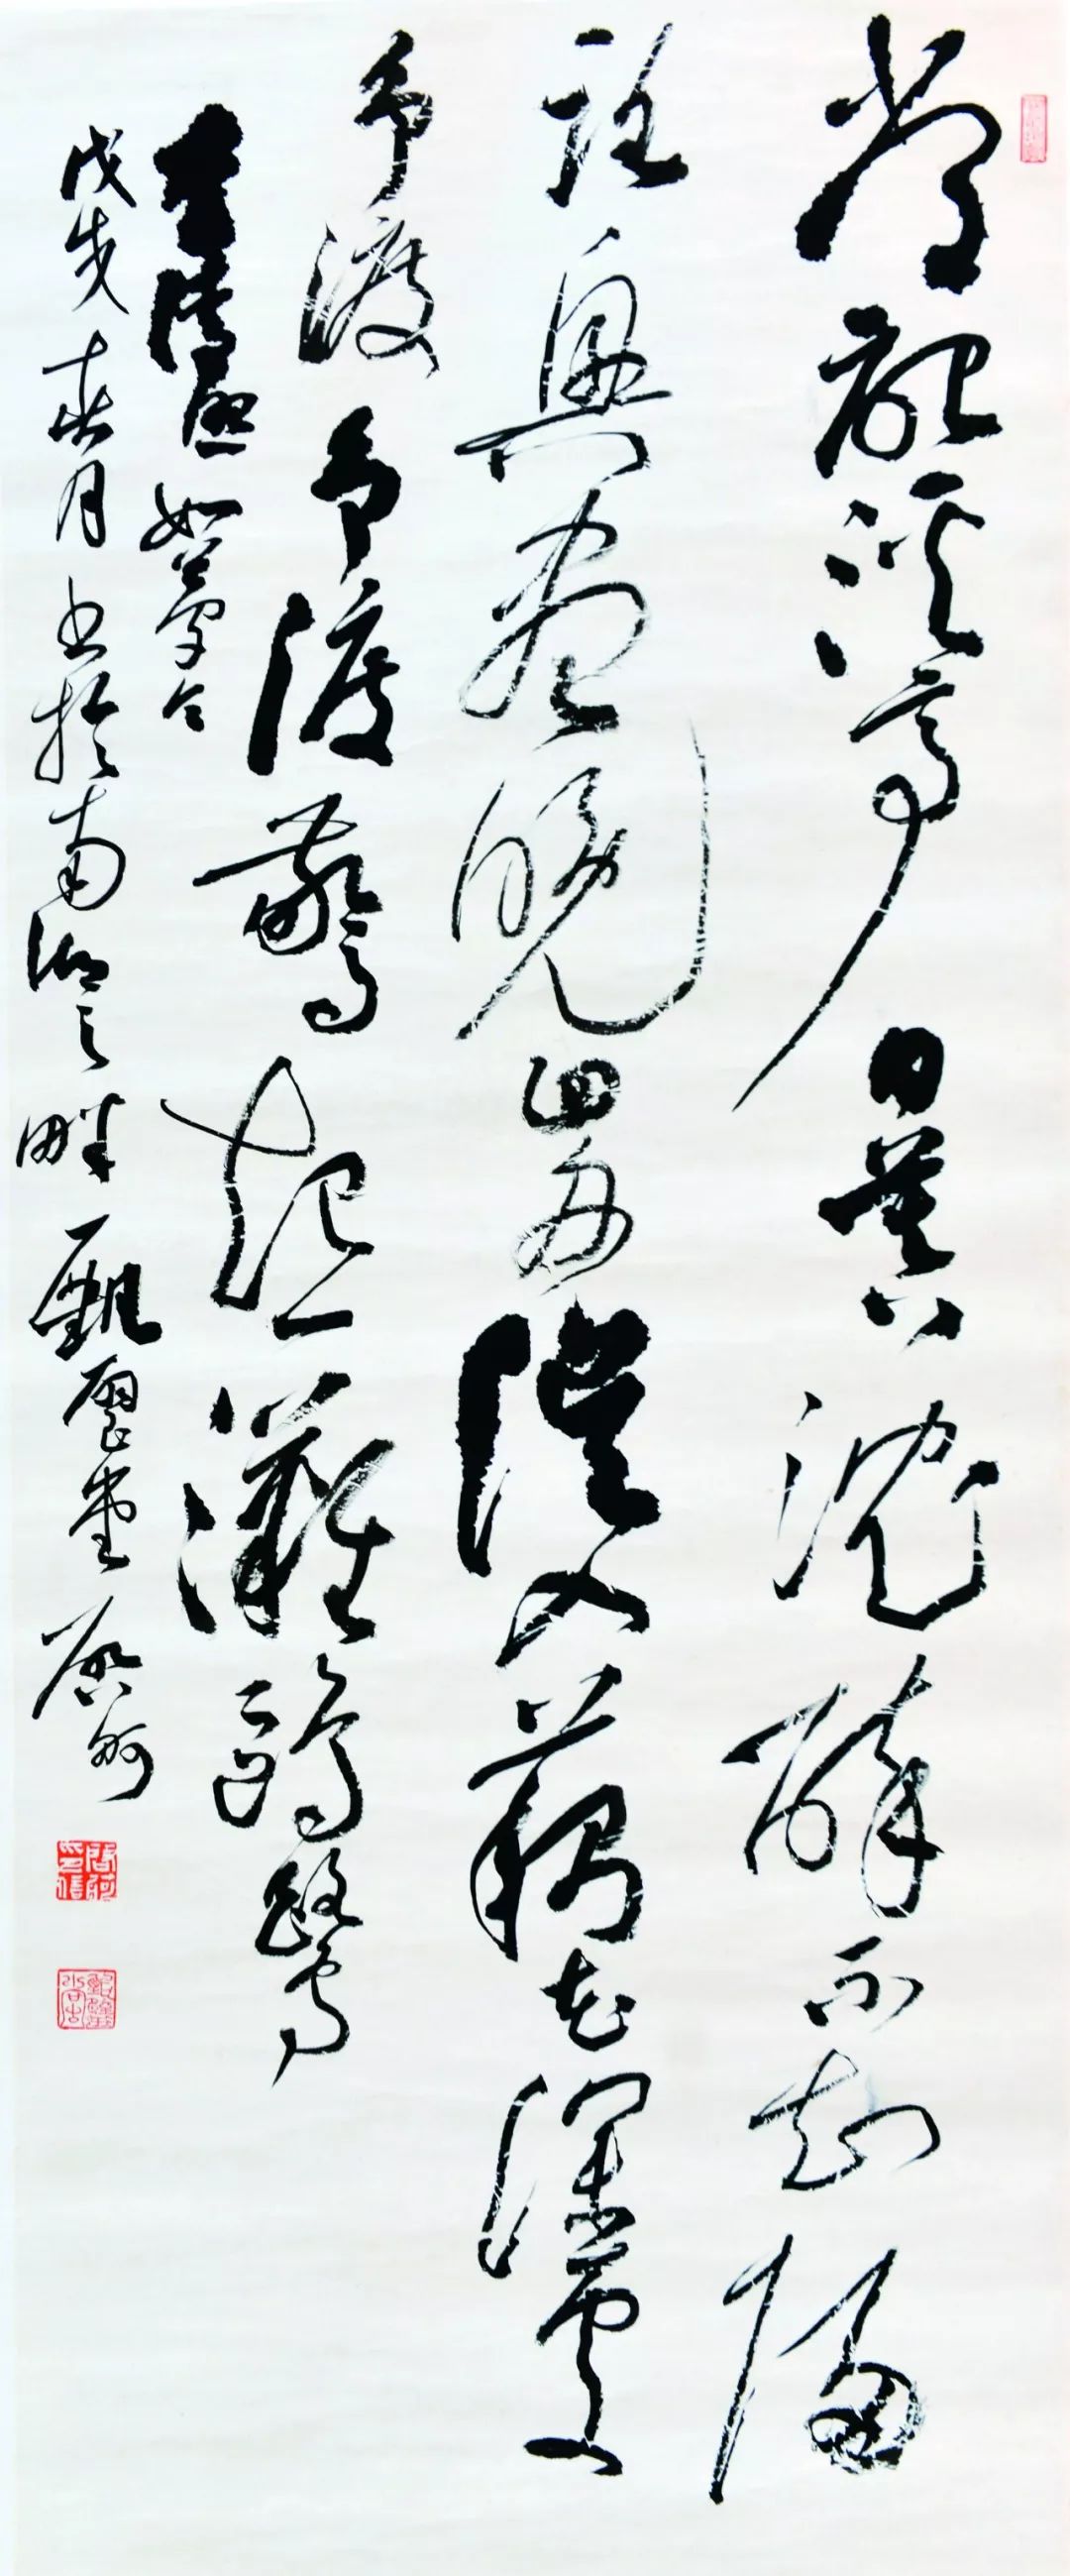 常記溪亭日暮沈醉不知歸
路興盡晚回舟誤入藕花深處
爭渡爭渡驚起一灘鷗鷺
李清照如夢令
戊戌春月書於南湖之畔堂啟河
啟河印信